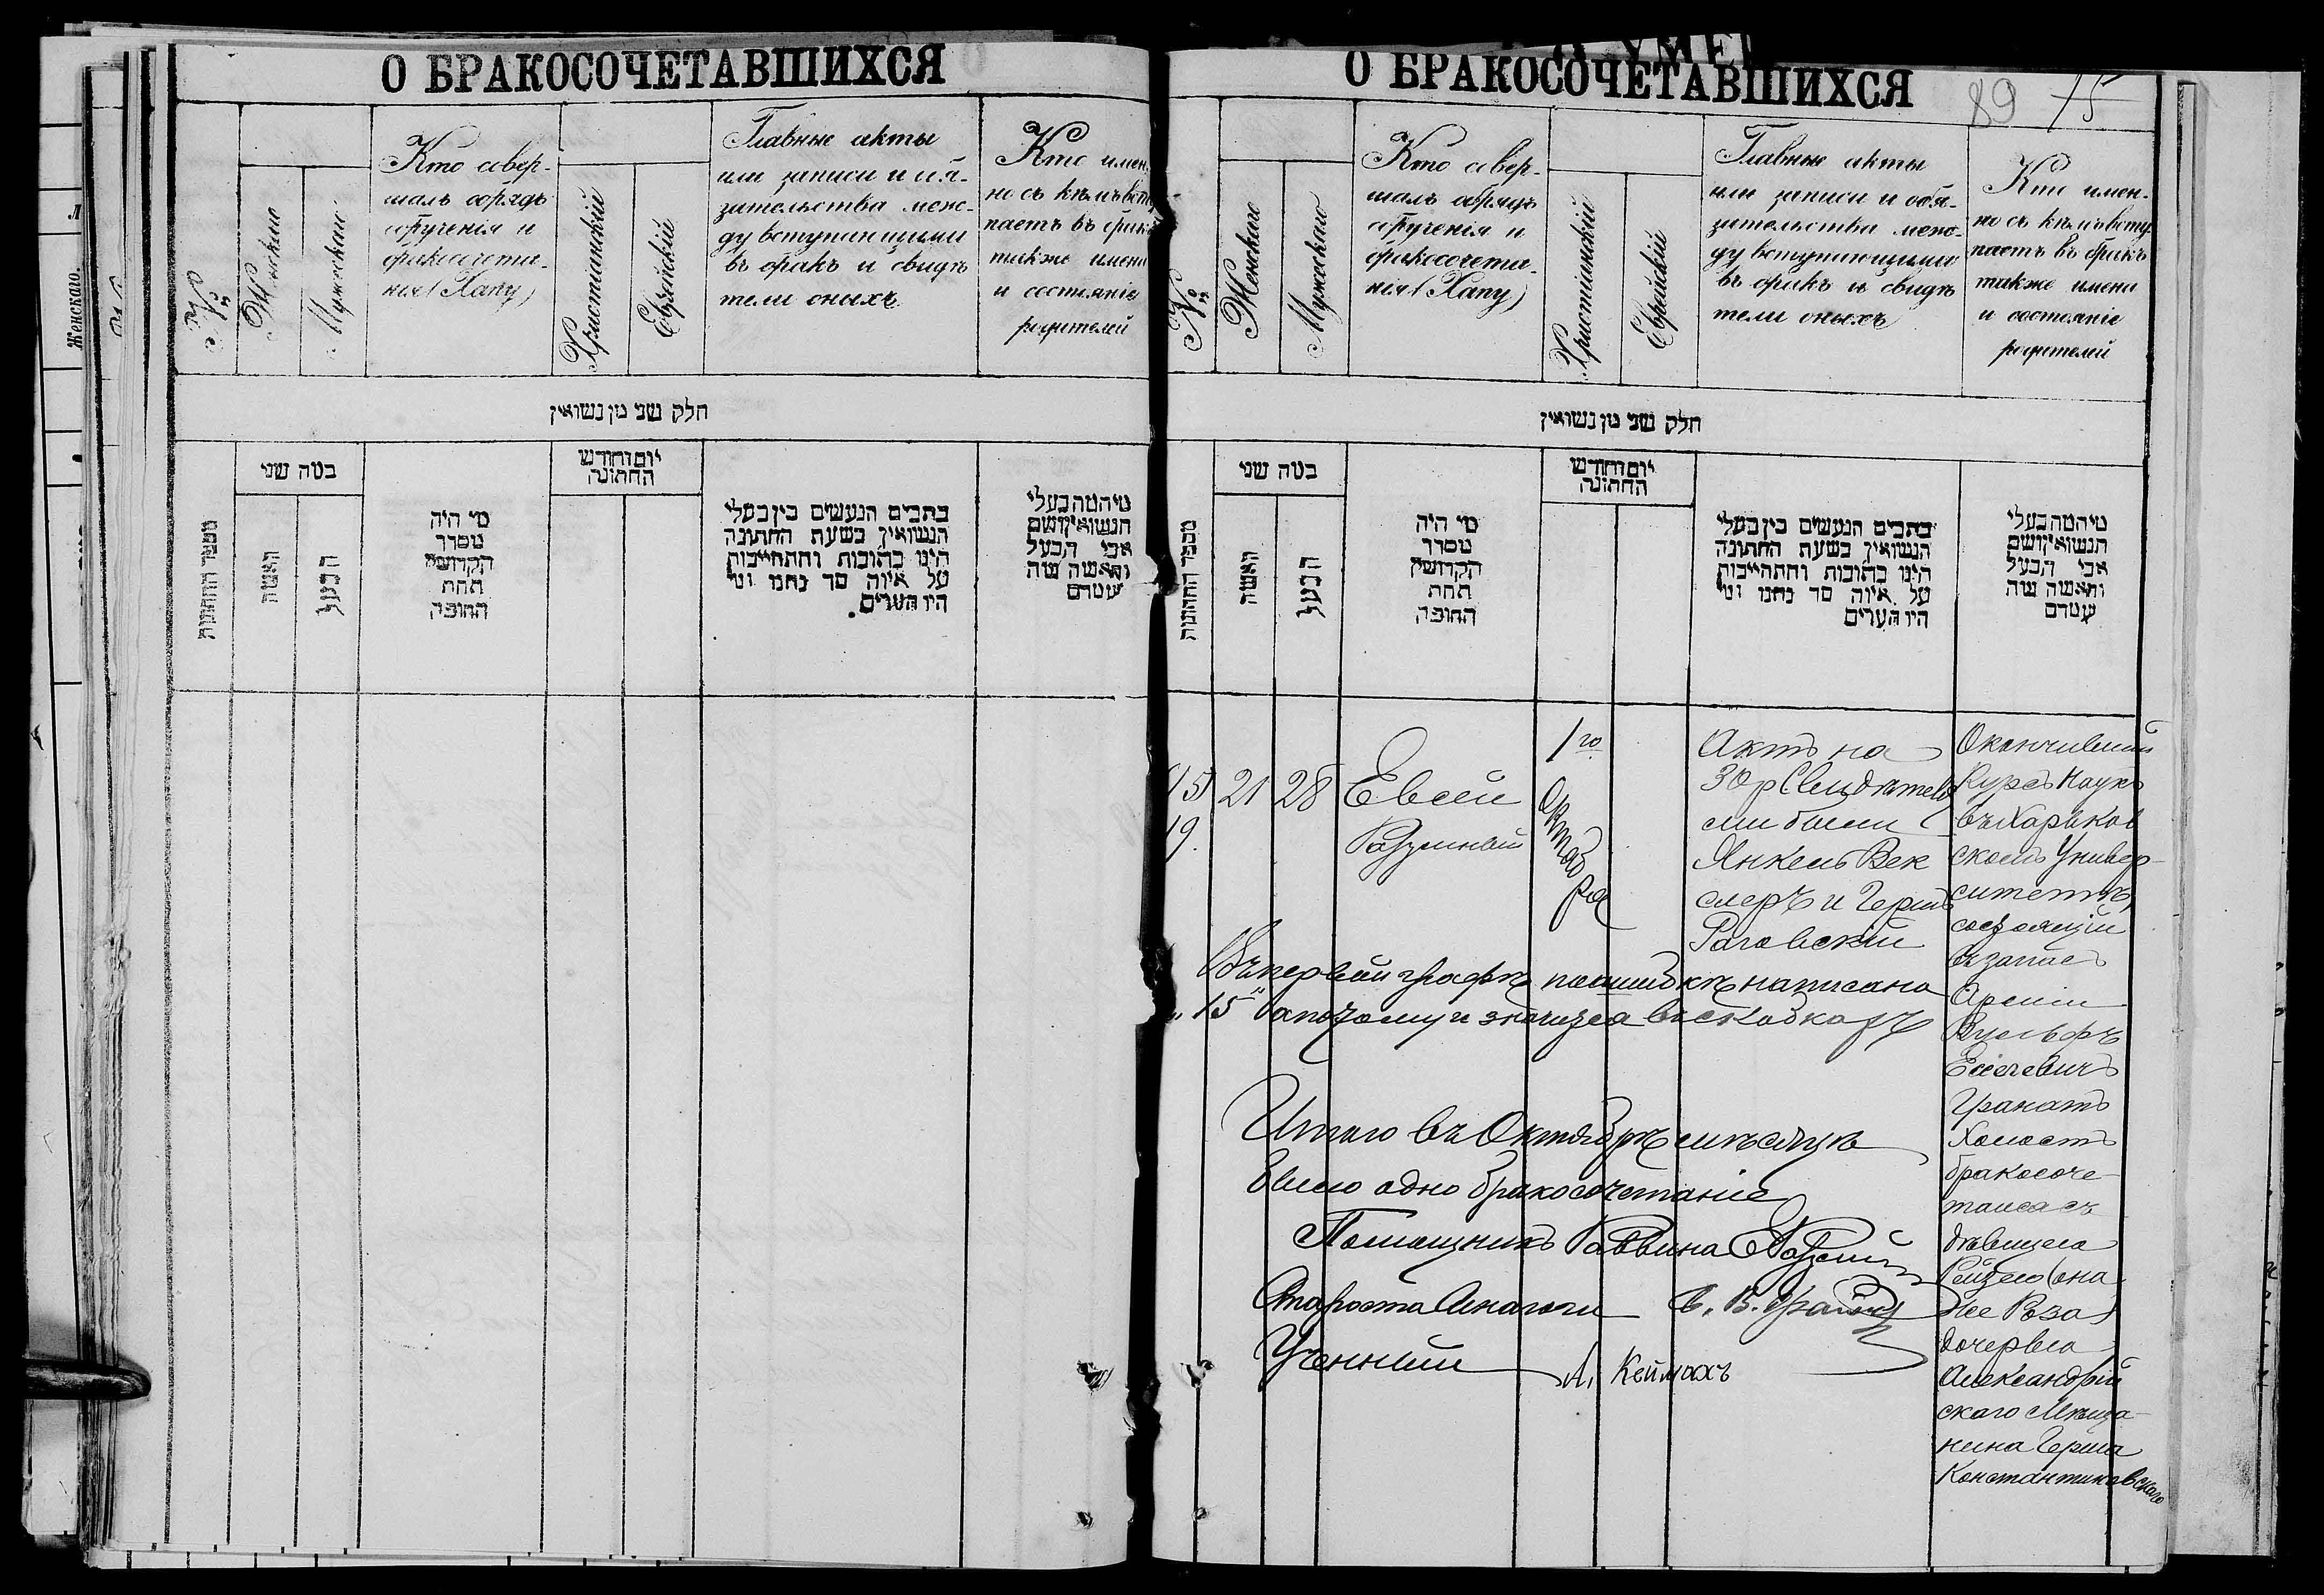 О БРАКОСОЧЕТАВШИХСЯ
№
Женскаго
Мужескаго
Кто совер-
шалъ обрядъ
обрученія и
бракосочета-
нія (Хапу)
Христіанскій
Еврейскій
Главные акты
или записи и обя-
зательства меж-
ду вступающими
въ бракъ и свидѣ
тели оныхъ
Кто имен-
но съ кѣмъ всту
паетъ въ бракъ
также имена
и состояніе
родителей
חלק שני מן נשואין
מספר החתונות
כמה שני
האשה
הבעל
מי היה
מסדר
הקדושין
תחת
החופה
יום וחודש
החתונה
כתבים הנעשים בין בעלי
הנשואין בשעת החתונה
היינו כתובות והתחייבות
על איזה סך נתנו ומי
היו העדים.
מי המה בעלי
הנשואין ושם
אבי הבעל
והאשה מה
עמדם
О БРАКОСОЧЕТАВШИХСЯ
89 15
№
Женскаго
Мужескаго
Кто совер-
шалъ обрядъ
обрученія и
бракосочета-
нія (Хапу)
Христіанскій
Еврейскій
Главные акты
или записи и обя-
зательства меж-
ду вступающими
въ бракъ и свидѣ
тели оныхъ
Кто имен-
но съ кѣмъ всту
паетъ въ бракъ
также имена
и состояніе
родителей
חלק שני מן נשואין
מספר החתונות
כמה שני
האשה
הבעל
מי היה
מסדר
הקדושין
תחת
החופה
יום וחודש
החתונה
כתבים הנעשים בין בעלי
הנשואין בשעת החתונה
היינו כתובות והתחייבות
על איזה סך נתנו ומי
היו העדים
מי המה בעלי
הנשואין ושם
אבי הבעל
והאשה מה
עמדם
(15)
19.
21
28
Евсей
Разумный
1го
Октяб
ря
Актъ на
30 р Свидѣтеля
ми были
Янкель Век
слеръ и Герш
Роговскій
Окончившій
Курсъ Наукъ
въ Харьков
скомъ Универ-
ситетѣ,
состоящій
въ запасѣ
Арміи
Вульфъ
Гранатъ
Холостъ
бракосоче-
тался съ
дѣвицею
Рейзею (она
же Роза)
дочерью
Александрій
скаго Мѣща-
нина Герша
Константиновскаго
Въ первой графѣ по ошибкѣ написано
„15" а потому и значится въ скобкахъ
Итого въ Октябрѣ мѣсяцѣ
было одно бракосочетаніе
Помощникъ Раввина Е Разумный
Староста Синагоги
Ученный А. Кеймахъ